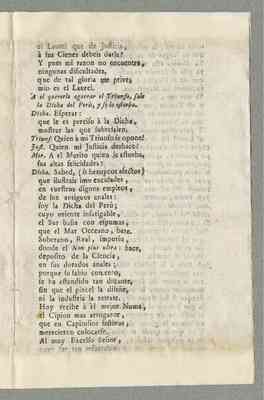 el Laurel que de Justicia,
à sus Cienes debeis darla?
Y pues mi razon no encuentra,
ningunas dificultades,
que de tal gloria me prive,
mio es el Laurel.
A el quererla agarrar el Triunfo, sale
la Dicha del Perù, y se lo estorba.
Dicha. Esperar:
que le es preciso à la Dicha,
mostrar las que sobresalen.
Triunf. Quien à mi Triunfo se opone?
Just. Quien mi Justicia deshace?
Mer. A el Merito quien le estorba,
sus altas felicidades?
Dicha. Sabed, (ò hermosos afectos)
que ilustrais
en vuestros dignos empleos,
de los antiguos anales:
soy la Dicha del Perù;
cuyo oriente infatigable,
el Sur baña con espumas,
que el Mar Occeano, bate.
Soberano, Real, imperio,
donde el Non plus ultra: hace,
deposito de la Ciencia,
en sus dorados anales;
porque su sabio
se ha estendido tan distante,
sin que el pincel la diseñe,
ni la industria la retrate.
Hoy recibe à el mejor Numa,
el Cipion mas arrogante,
que en Capitolios festivos,
merecieron colocarse.
Al muy Excelso Señor,